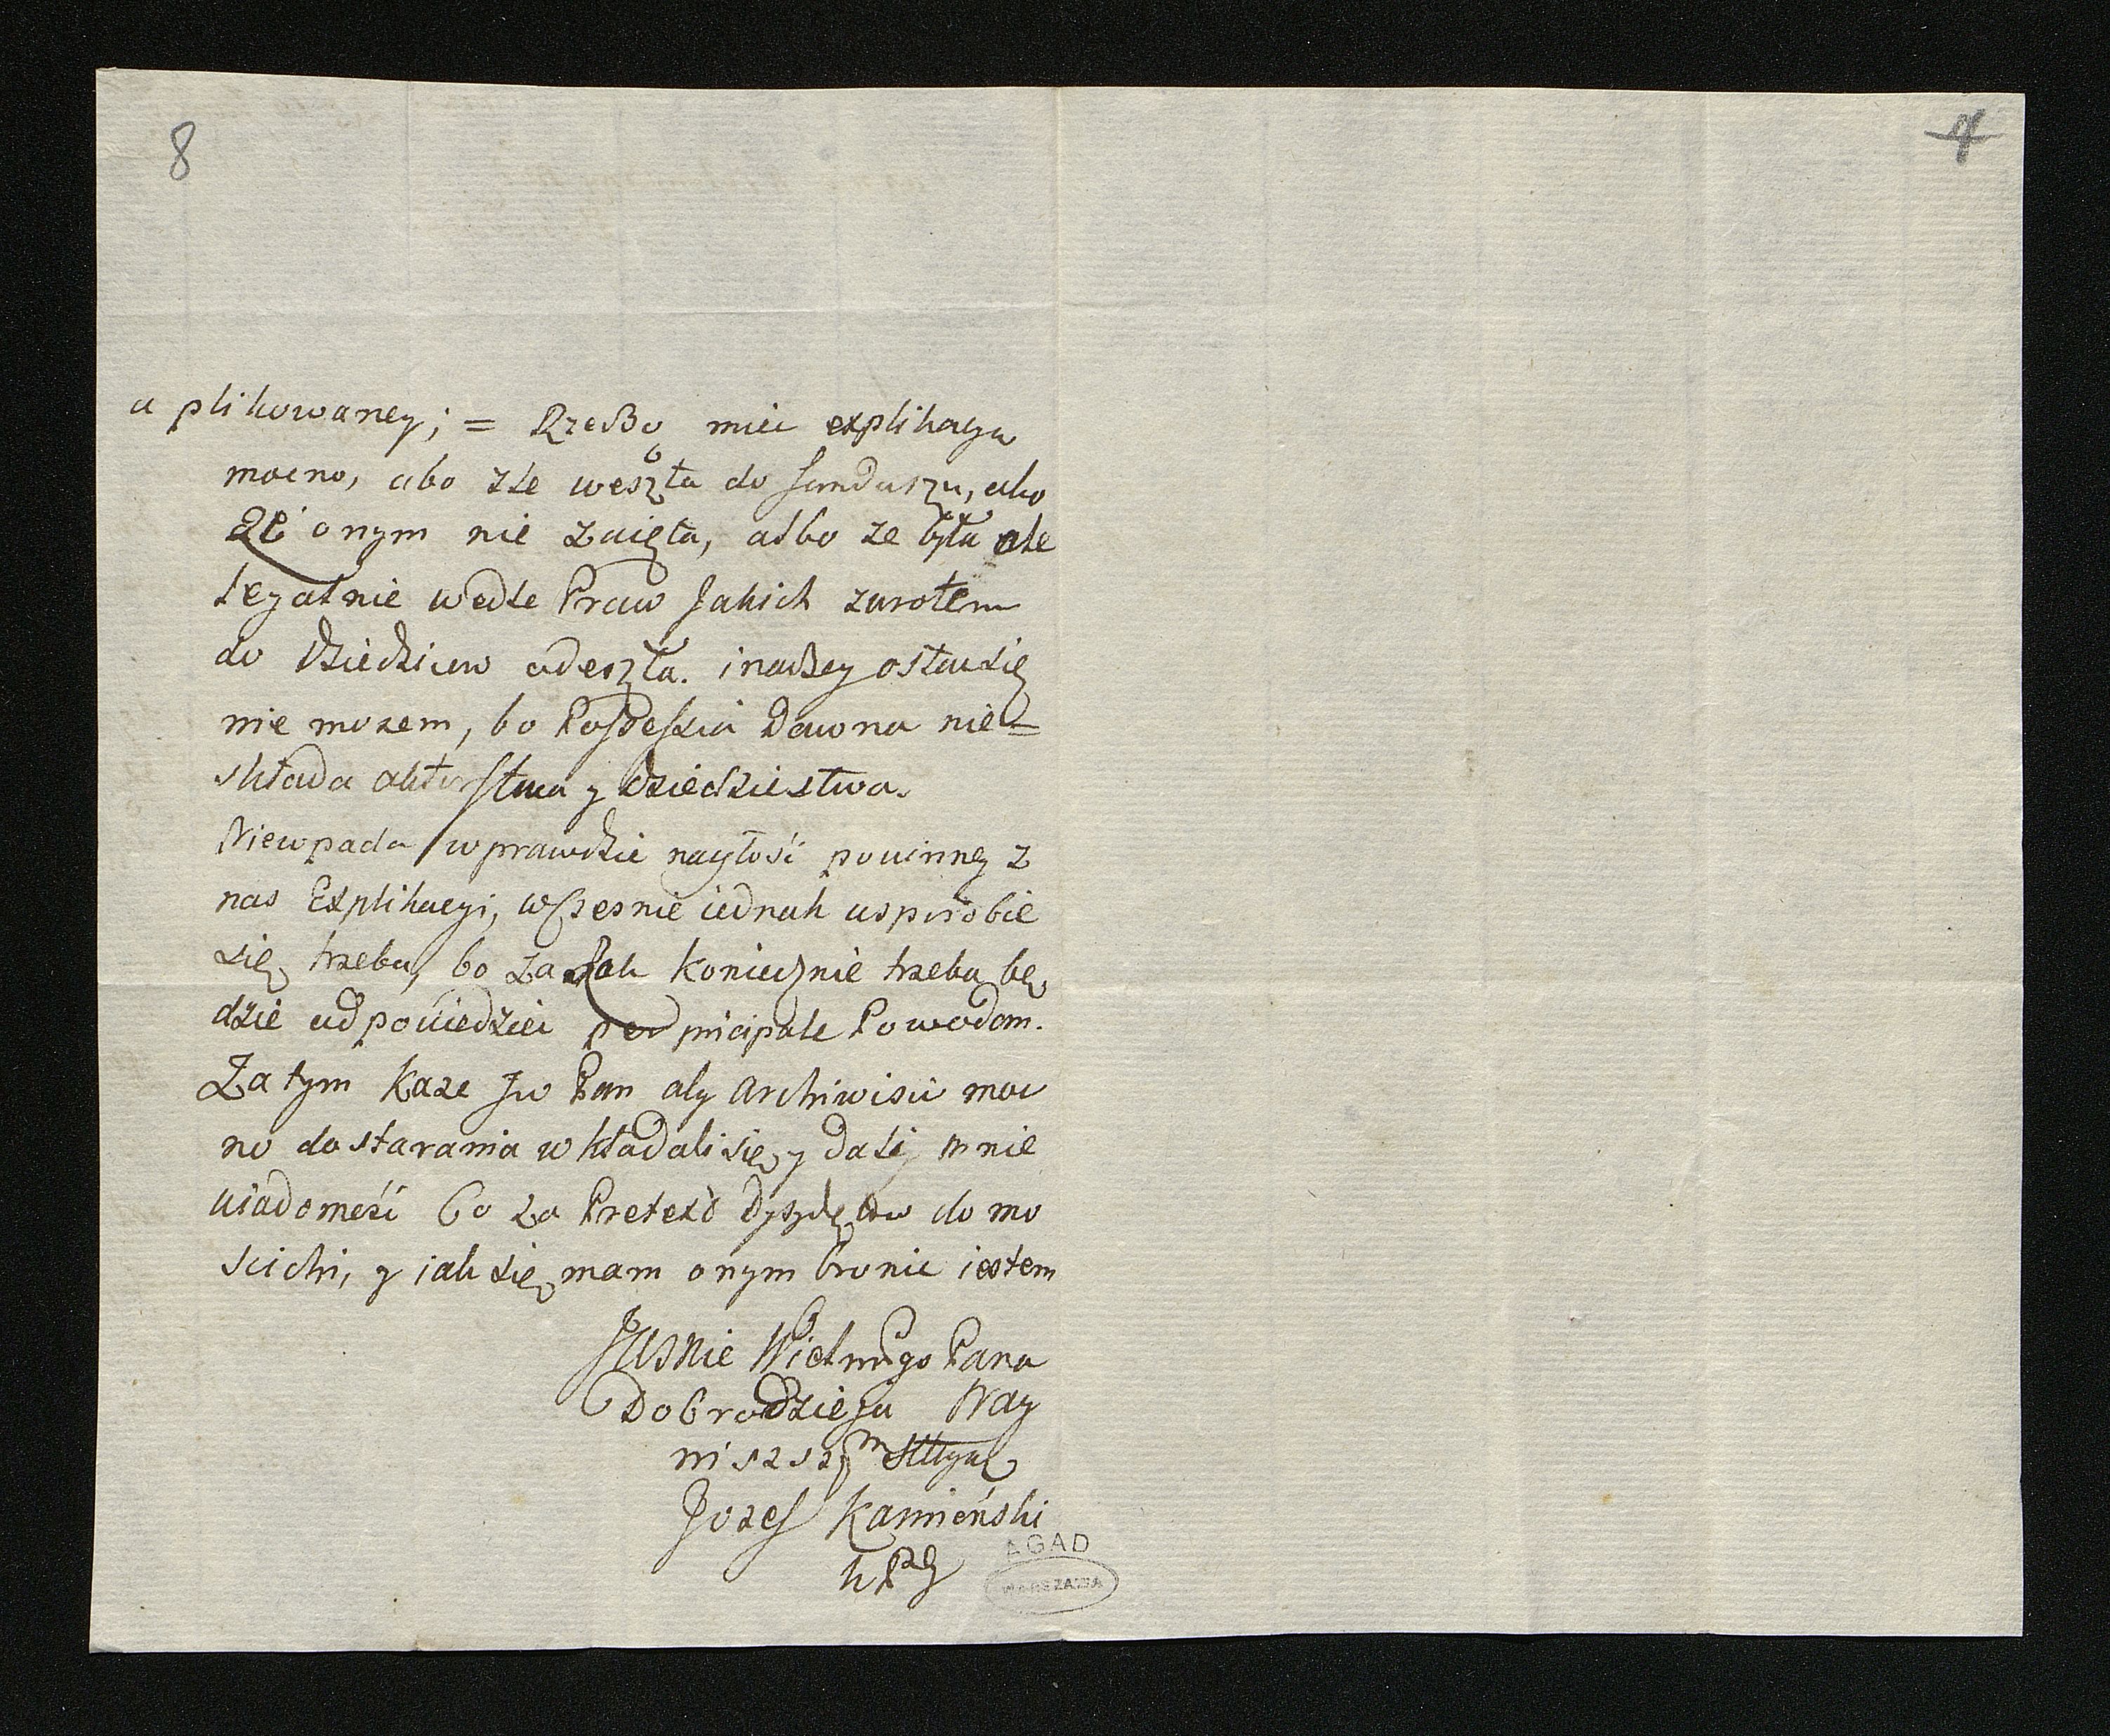 8
7
aplikowaney; = Rzeßo mieć explikacyą
mocno, abo źle weszła do funduszu, abo
że onym nie zaięta, albo ze była ale
legalnie wedle Praw Jakich zwrotem
do Dziedzicow odeszła. inaczey ostać się
nie mozem, bo Possessia Dawna nie=
składa aktorstwa y dziedzictwa.
Niewpada wprawdzie nagłość powinney z
nas Explikacyi, wczesnie iednak usposobić
się trzeba, bo za Rok Koniecznie trzeba bę
dzie odpowiedzieć Powodom.
Zatym Kaze Jw Pan aby Archiwisci moc
no do starania wkładali się, y dali mnie
wiadomość Co za Pretext do mo
scichi, y iak się mam onym bronic iestem
Jasnie Wielmugo Pana
Dobrodzieja Nay
niszszym Sługą
Jozef Kamieński
AGAD
WARSZAWA